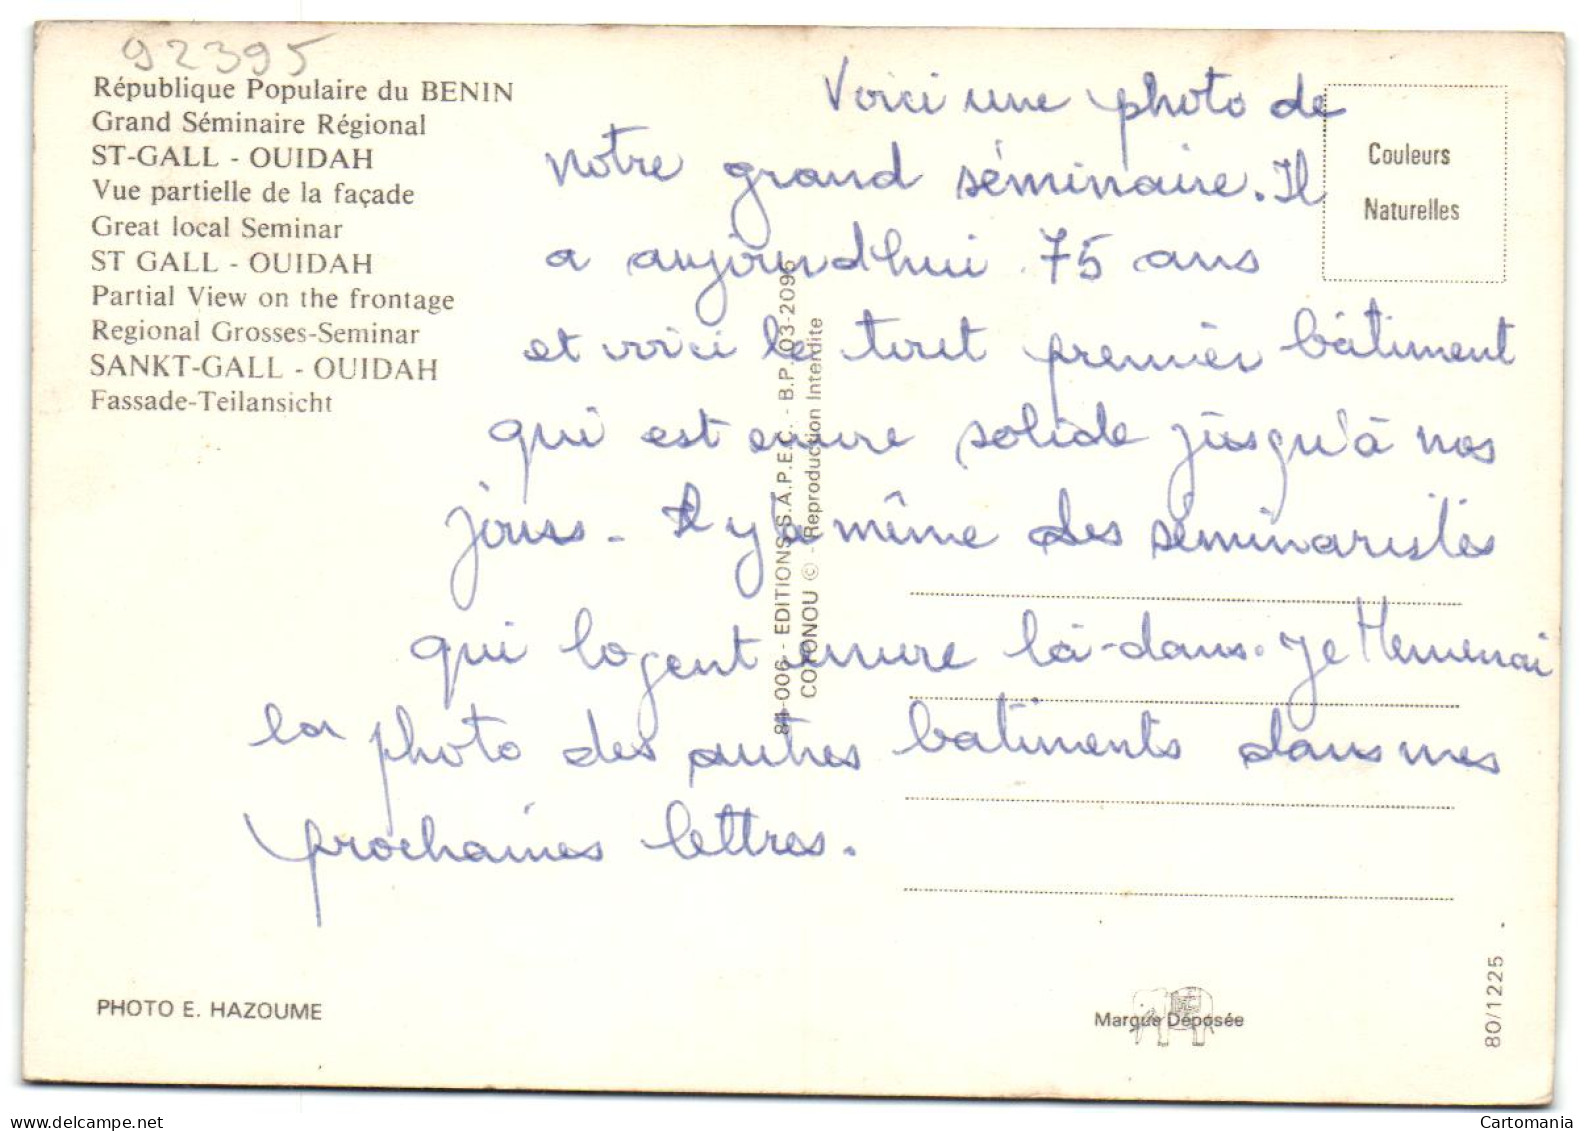 92395
République Populaire du BENIN
Grand Séminaire Régional
ST-GALL - OUIDAH
Vue partielle de la façade
Great local Seminar
ST GALL - OUIDAH
Partial View on the frontage
Regional Grosses-Seminar
SANKT-GALL - OUIDAH
Fassade-Teilansicht
Voici une photo de
notre grand séminaire. Il
a aujourd'hui 75 ans
et voici le tout premier bâtiment
qui est encore solide jusqu'à nos
jours. Il y a même des séminaristes
qui logent encore là-dans. Je
la photo des autres batiments dans mes
prochaines lettres.
Couleurs
Naturelles
81-006 - EDITIONS S.A.P.E.C. - B.P. 03-2095
COTONOU © - Reproduction Interdite
PHOTO E. HAZOUME
Marque Déposée
80/1225
Cartomania
delcampe.net